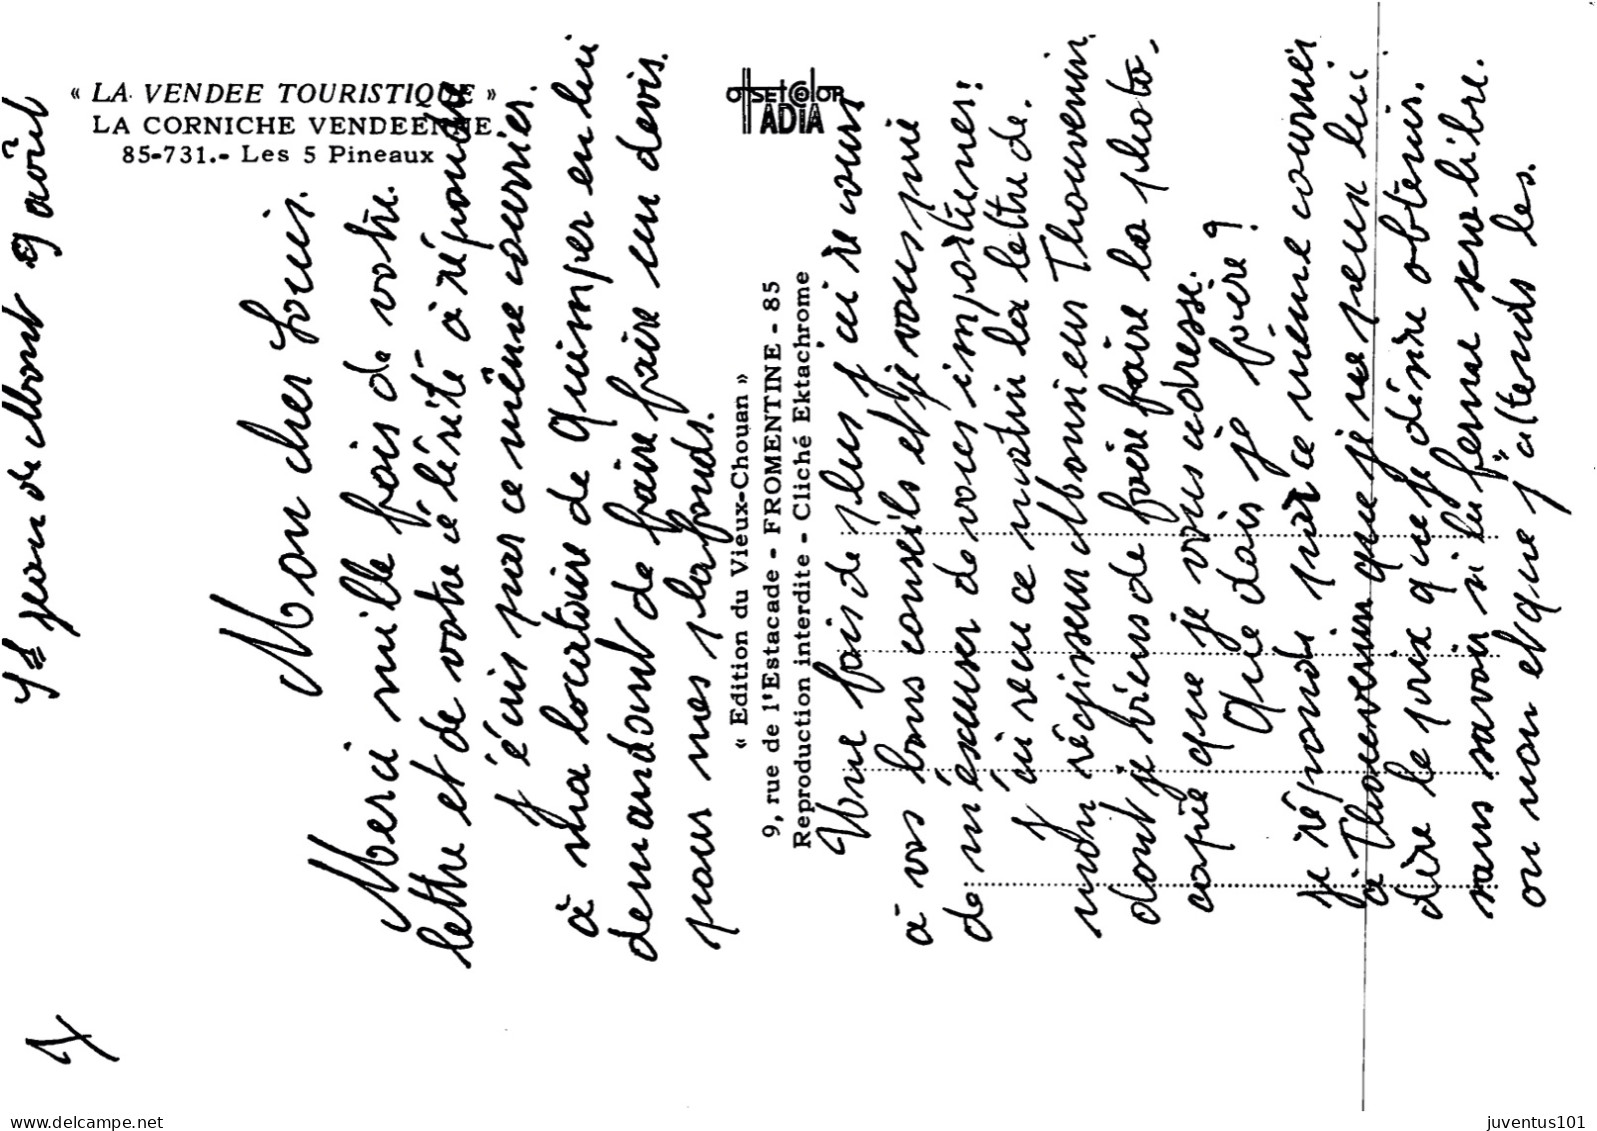 « LA VENDEE TOURISTIQUE »
LA CORNICHE VENDEENNE
85-731.- Les 5 Pineaux
OffsetColor
ADIA
« Edition du Vieux-Chouan »
9, rue de l'Estacade - FROMENTINE - 85
Reproduction interdite - Cliché Ektachrome
1/
St Jean de Mont 9 août
Mon cher Louis.
Merci mille fois de votre
lettre et de votre célérité à répondre
J'écris par ce même courrier.
à ma locataire de Quimper en lui
demandant de faire faire un devis.
pour mes plafonds.
Une fois de plus j'ai recours
à vos bons conseils et je vous prie
de m'excuser de vous importuner!
J'ai reçu ce matin la lettre de
mon régisseur Monsieur Thouvenin
dont je viens de faire faire la photo-
copie que je vous adresse.
Que dois je faire?
Je réponds par ce même courrier
à Thouvenin que je ne peux lui
dire le prix que je désire obtenir.
sans savoir si la ferme sera libre.
ou non et que j'attends les
www.delcampe.net
juventus101